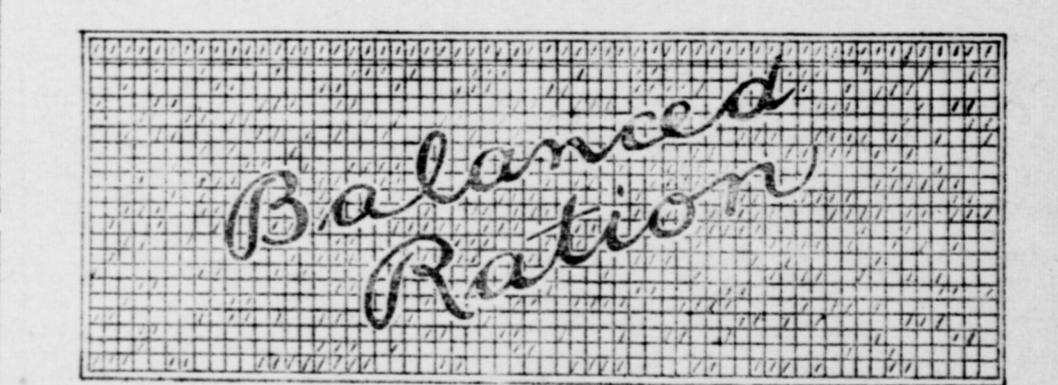 Balanced
Ration